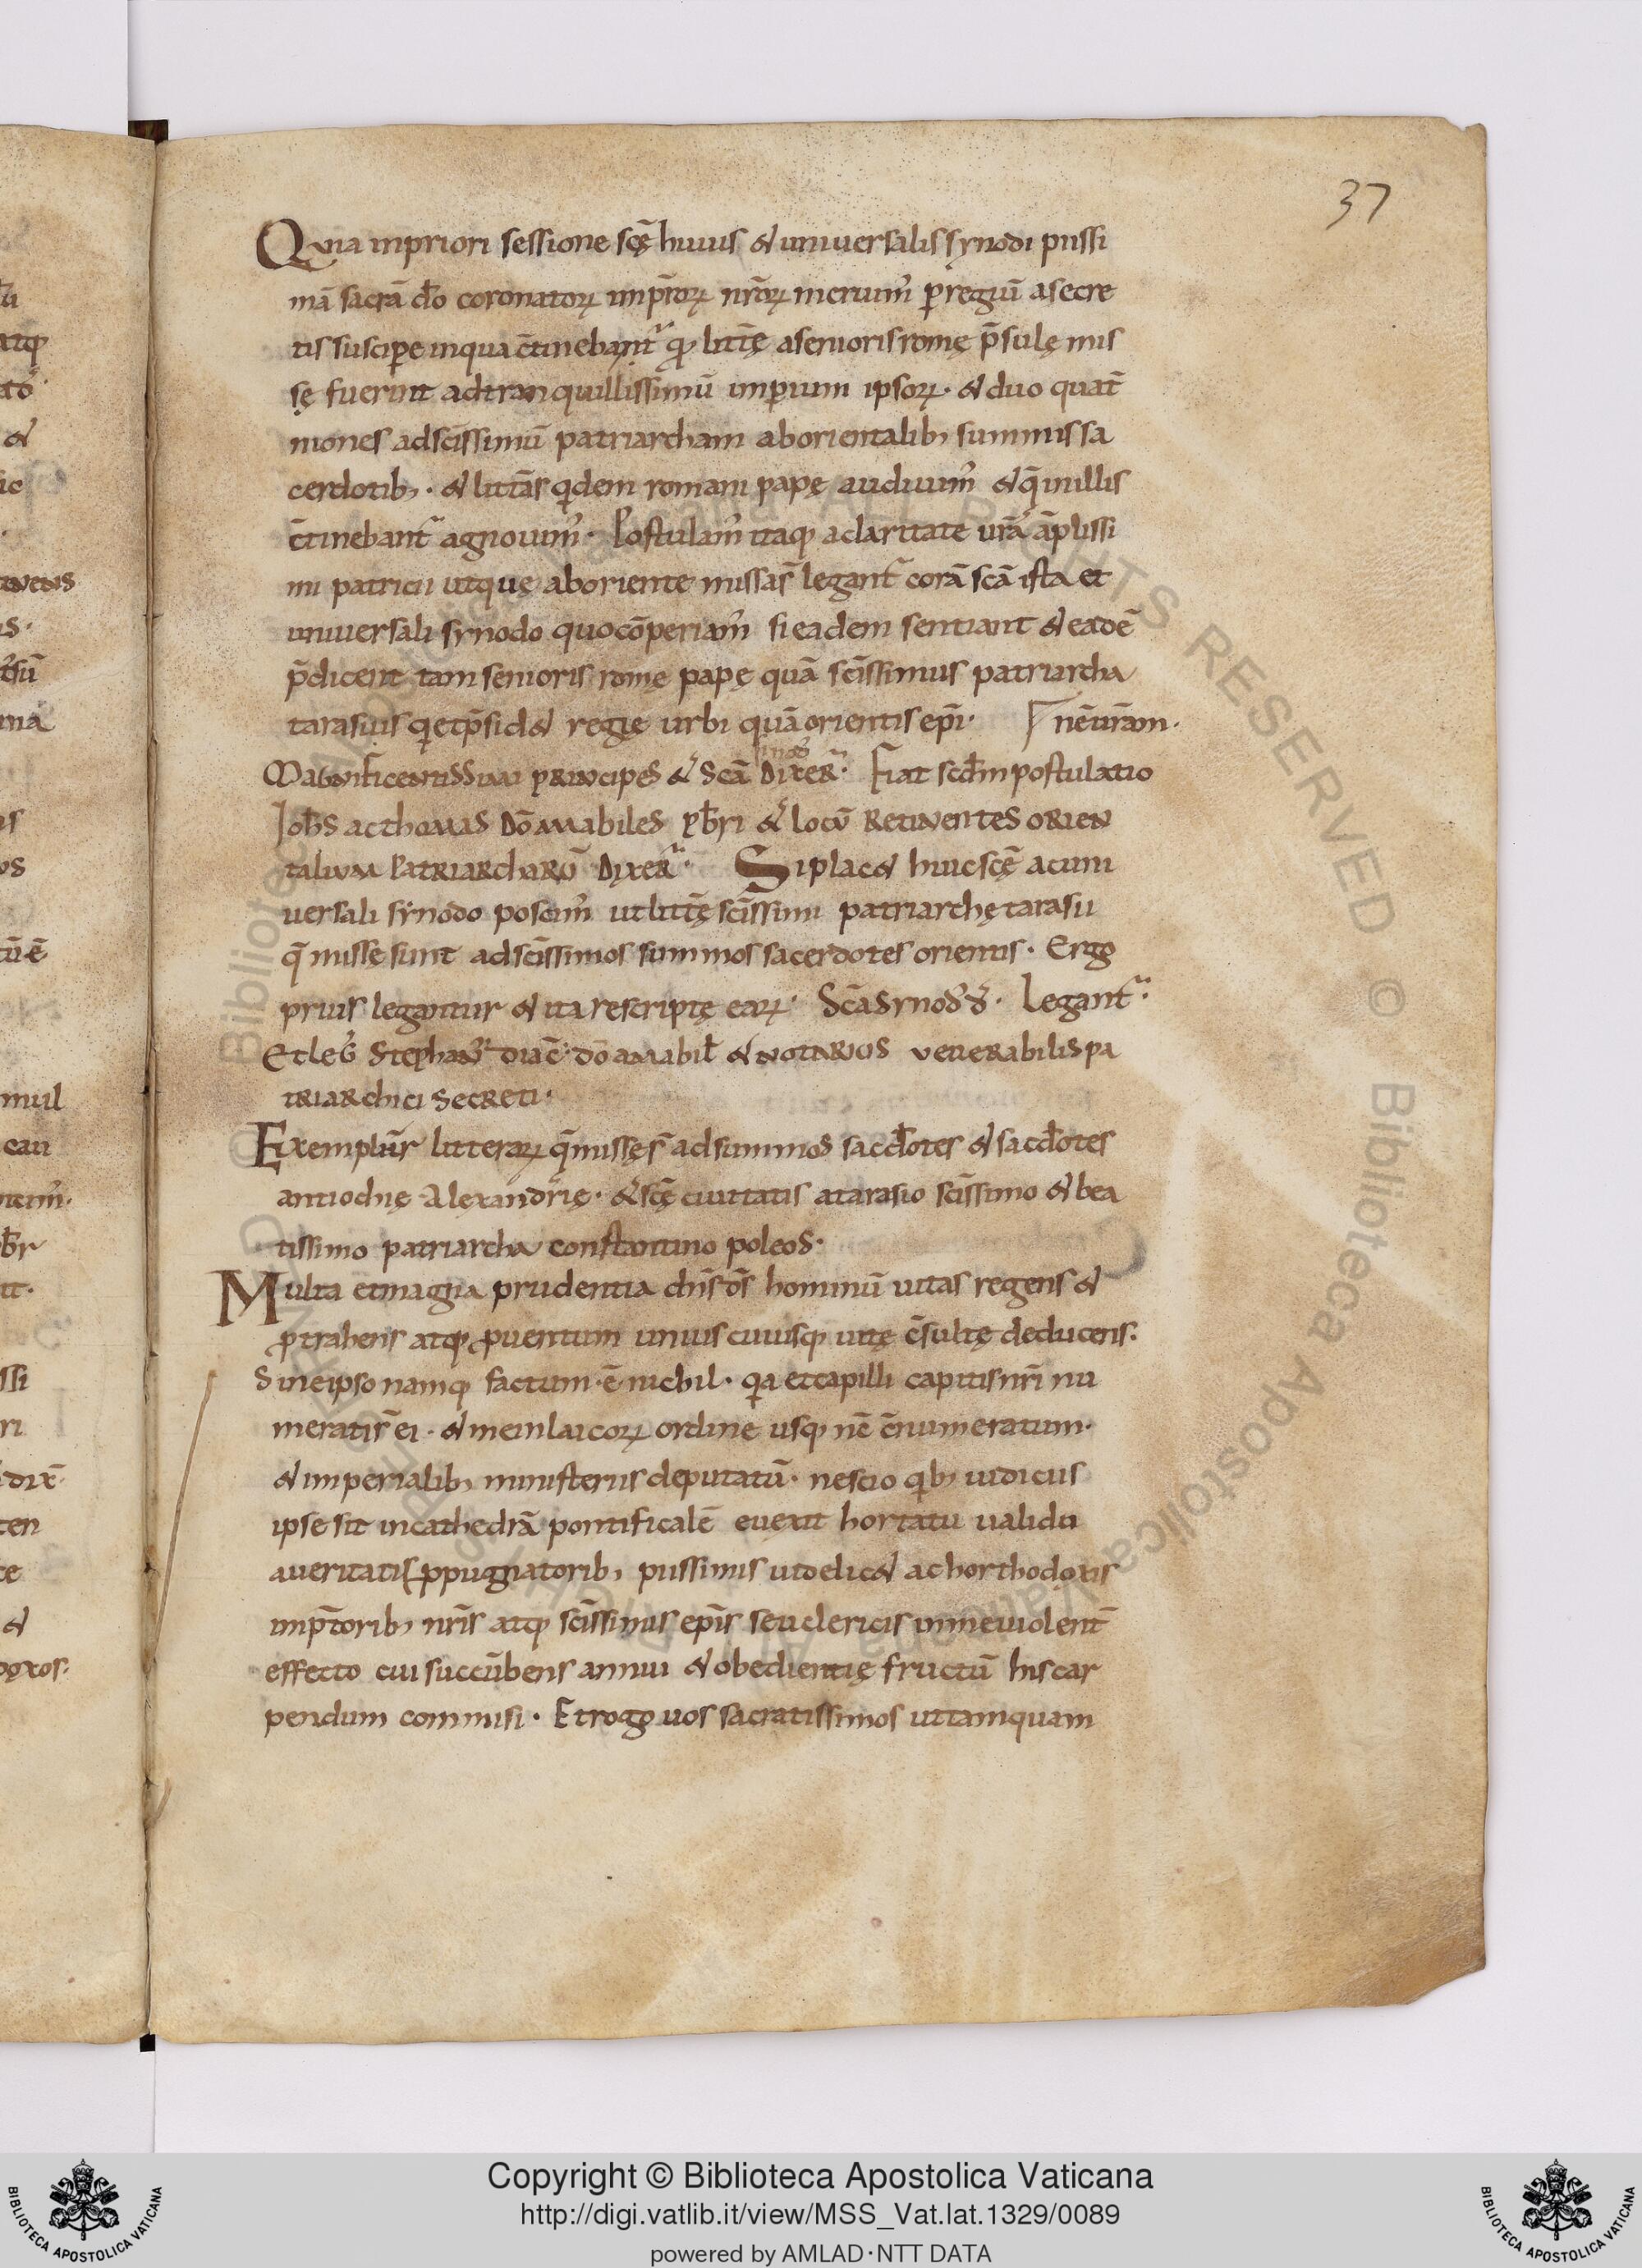 37
Quia inpriori sessione scę̄ huius & uniuersalis synodi piissi
mā sacrā dō coronatoꝝ imp̄roꝝ nr̄oꝝ meruimꝰ ꝑ regiū asecre
tis suscipe inqua c̄tinebantᷣ qꝫ litt̄ę asenioris romę p̄sulę mis
sę fuerint ad tranquillissimū imꝑium ipsoꝝ · & duo quat̄
niones ad sc̄issimū patriarcham aborientalibꝫ summis sa
cerdotibꝫ · & litt̄as qͥdem romani papę audiuimꝰ & q̄ inillis
c̄tinebantᷣ agnouimꝰ · Postulamꝰ itaqꝫ aclaritate ur̄a āplissi
mi patricii utquę aboriente missas̄ legantᷣ corā sc̄a ista et
uniuersali synodo quo cōperiamꝰ si eadem sentiant & eadē
p̄dicent tam senioris romę papę quā sc̄issimus patriarcha
tarasius qͥ et p̄sid& regię urbi quā orientis ep̄i · nēur̄am ·
Magnificentissimi principes & scā sinodꝰ dixerᷣ · Fiat scd̄m postulatio
Ioh̄s ac thomas dō amabiles pb̄ri & locū retinentes orien
talium patriarcharū dixerᷣ · Si plac& huic scę̄ ac uni
uersali synodo poscimꝰ ut litt̄ę sc̄issimi patriarchę tarasii
q̄ missę sunt ad sc̄issimos summos sacerdotes orientis · Ergo
prius legantur & ita rescriptę eaꝝ · Scā synodꝰ d̄ · Legantᷣ ·
Et leḡ Stephanꝰ diac̄ · dō amabil̄ & notarius venerabilis pa
triarchici secreti ·
Exemplūr litteraꝝ q̄ missę s̄ ad summos sacd̄otes & sacd̄otes
antiochię Alexandrię · & scę̄ ciuitatis a tarasio sc̄issimo & bea
tissimo patriarcha constantino poleos ·
Multa et magna prudentia chr̄s d̄s hominū uitas regens &
ꝓtrahens atqꝫ ꝓuentum unius cuiusqꝫ uitę c̄sultę deducens ·
Sine ipso namqꝫ factum · ē nichil · qͥa et capilli capitis nr̄i nu
merati s̄ ei · & me inlaicoꝝ ordine usqꝫ nc̄ c̄numeratum ·
& imperialibꝫ ministeriis deputatū · nescio qͥbꝫ iudiciis
ipse sit incathedrā pontificalē euexit hortatu ualida
aueritatis ꝓpugnatoribꝫ piissimis uidelic& ac horthodoxis
imp̄toribꝫ nr̄is atqꝫ sc̄issimis ep̄is seu clericis in me uiolent̄
effecto cui succūbens annui & obedientię fructū his car
pendum commisi · Et rogo uos sacratissimos ut tamquam
Copyright © Biblioteca Apostolica Vaticana
http://digi.vatlib.it/view/MSS_Vat.lat.1329/0089
powered by AMLAD·NTT DATA